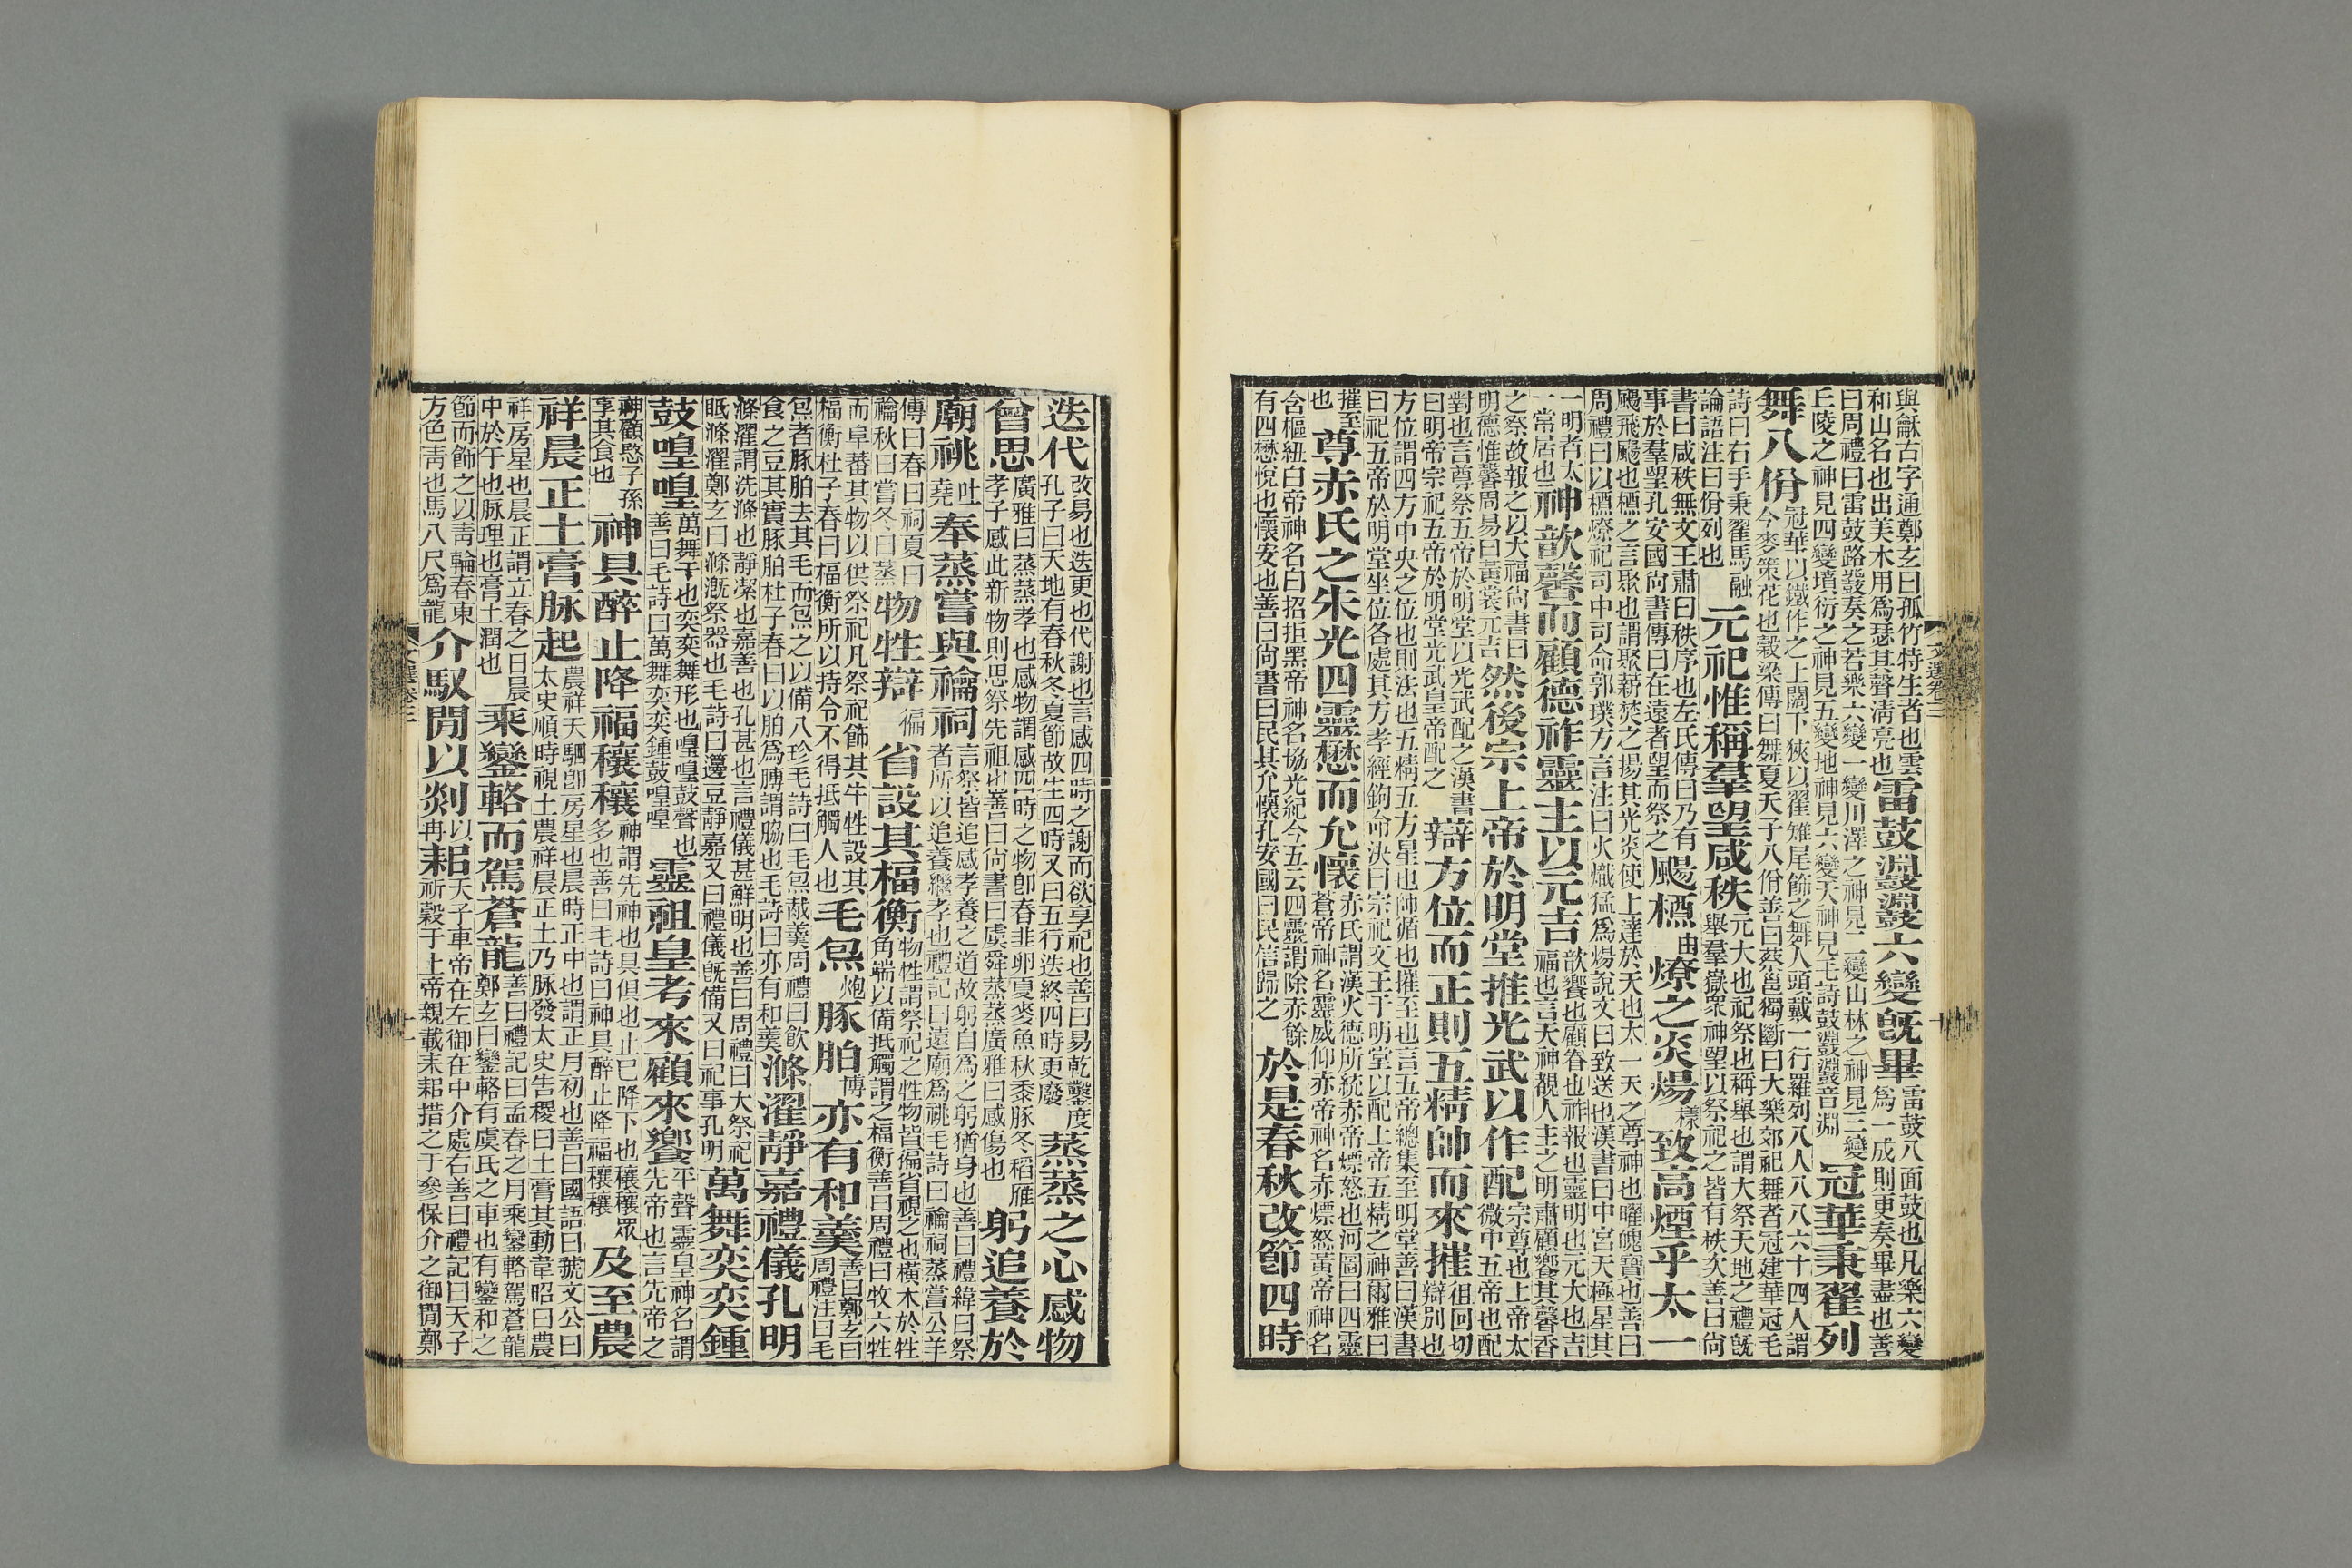 與龢古字通鄭玄曰孤竹特生者也雲和山名也出美木用爲瑟其聲清亮也雷鼓鼝鼝六變旣畢雷鼓八面鼓也凡樂六變爲一成則更奏畢盡也善
曰周禮曰雷鼓路鼗奏之若樂六變一變川澤之神見二變山林之神見三變丘陵之神見四變墳衍之神見五變地神見六變天神見毛詩鼓鼝鼝音淵冠華秉翟列
舞八佾冠華以鐵作之上闊下狹以翟雉尾飾之舞人頭戴一行羅列八人八八六十四人謂今麥策花也穀梁傳曰舞夏天子八佾善曰蔡邕獨斷曰大樂郊祀舞者冠建華冠毛
詩曰右手秉翟馬融論語注曰佾列也元祀惟稱羣望咸秩元大也祀祭也稱舉也謂大祭天地之禮旣舉羣嶽衆神望以祭祀之皆有秩次善曰尙
書曰咸秩無文王肅曰秩序也左氏傳曰乃有事於羣望孔安國尙書傳曰在遠者望而祭之颺槱由燎之炎煬樣致高煙乎太一
颺飛颺也槱之言聚也謂聚薪焚之揚其光炎使上達於天也太一天之尊神也曜魄寶也善曰周禮曰以槱燎祀司中司命郭璞方言注曰火熾猛爲煬說文曰致送也漢書曰中宮天極星其
一明者太一常居也神歆馨而顧德祚靈主以元吉歆饗也顧眷也祚報也靈明也元大也吉福也言天神覩人主之明肅顧饗其馨香
之祭故報之以大福尙書曰明德惟馨周易曰黃裳元吉然後宗上帝於明堂推光武以作配宗尊也上帝太微中五帝也配
對也言尊祭五帝於明堂以光武配之漢書曰明帝宗祀五帝於明堂光武皇帝配之辯方位而正則五精帥而來摧徂回切辯别也
方位謂四方中央之位也則法也五精五方星也帥循也摧至也言五帝總集至明堂善曰漢書曰祀五帝於明堂坐位各處其方孝經鉤命決曰宗祀文王于明堂以配上帝五精之神爾雅曰
摧至也尊赤氏之朱光四靈懋而允懷赤氏謂漢火德所統赤帝熛怒也河圖曰四靈蒼帝神名靈威仰赤帝神名赤熛怒黃帝神名
含樞紐白帝神名白招拒黑帝神名協光紀今五云四靈謂除赤餘有四懋悅也懷安也善曰尙書曰民其允懷孔安國曰民信歸之於是春秋改節四時
文選卷三
迭代改易也迭更也代謝也言感四時之謝而欲享祀也善曰易乾鑿度孔子曰天地有春秋冬夏節故生四時又曰五行迭終四時更廢蒸蒸之心感物
曾思廣雅曰蒸蒸孝也感物謂感四時之物卽春韭卵夏麥魚秋黍豚冬稻雁孝子感此新物則思祭先祖也善曰尙書曰虞舜蒸蒸廣雅曰感傷也躬追養於
廟祧吐堯奉蒸嘗與禴祠言祭皆追感孝養之道故躬自爲之躬猶身也善曰禮緯曰祭者所以追養繼孝也禮記曰遠廟爲祧毛詩曰禴祠蒸嘗公羊
傳曰春曰祠夏曰禴秋曰嘗冬曰蒸物牲辯徧省設其楅衡物牲謂祭祀之牲物皆徧省視之也橫木於牲角端以備抵觸謂之楅衡善曰周禮曰牧六牲
而阜蕃其物以供祭祀凡祭祀飾其牛牲設其楅衡杜子春曰楅衡所以持令不得抵觸人也毛炰炮豚胉博亦有和羹善曰鄭玄曰周禮注曰毛
炰者豚胉去其毛而炰之以備八珍毛詩曰毛炰胾羹周禮曰飲食之豆其實豚胉杜子春曰以胉爲膊謂脇也毛詩曰亦有和羹滌濯靜嘉禮儀孔明
滌濯謂洗滌也靜潔也嘉善也孔甚也言禮儀甚鮮明也善曰周禮曰大祭祀眂滌濯鄭玄曰滌漑祭器也毛詩曰籩豆靜嘉又曰禮儀旣備又曰祀事孔明萬舞奕奕鍾
鼓喤喤萬舞干也奕奕舞形也喤喤鼓聲也善曰毛詩曰萬舞奕奕鍾鼓喤喤靈祖皇考來顧來饗平聲靈皇神名謂先帝也言先帝之
神顧愍子孫享其食也神具醉止降福穰穰神謂先神也具俱也止已降下也穰穰眾多也善曰毛詩曰神具醉止降福穰穰及至農
祥晨正土膏脉起農祥天駟卽房星也晨時正中也謂正月初也善曰國語曰虢文公曰太史順時視土農祥晨正土乃脉發太史告稷曰土膏其動韋昭曰農
祥房星也晨正謂立春之日晨中於午也脉理也膏土潤也乘鑾輅而駕蒼龍善曰禮記曰孟春之月乘鑾輅駕蒼龍鄭玄曰鑾輅有虞氏之車也有鑾和之
節而飾之以靑輪春東方色靑也馬八尺爲龍介馭閒以剡冉耜天子車帝在左御在中介處右善曰禮記曰天子祈穀于上帝親載耒耜措之于參保介之御閒鄭
文選卷三